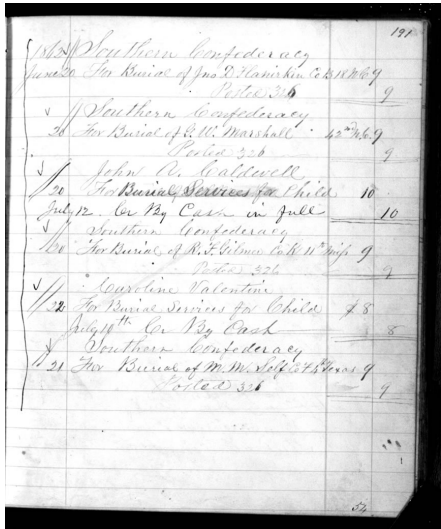 191
1862 Southern Confederacy
June 20 For Burial of Jno D. Co B 18 N.C. 9
Posted 326 9
Southern Confederacy
20 For Burial of G.W. Marshall 42nd N.C. 9
Posted 326 9
John A. Caldwell
20 For Burial Services for Child 10
July 12 Cr By Cash in full 10
Southern Confederacy
20 For Burial of R. F. Gilmer Co K 11th Miss 9
Posted 326 9
Caroline Valentine
22 For Burial Services for Child $ 8
July 10th Cr By Cash 8
Southern Confederacy
21 For Burial of M. M. Self Co F Texas 9
Posted 326 9
54